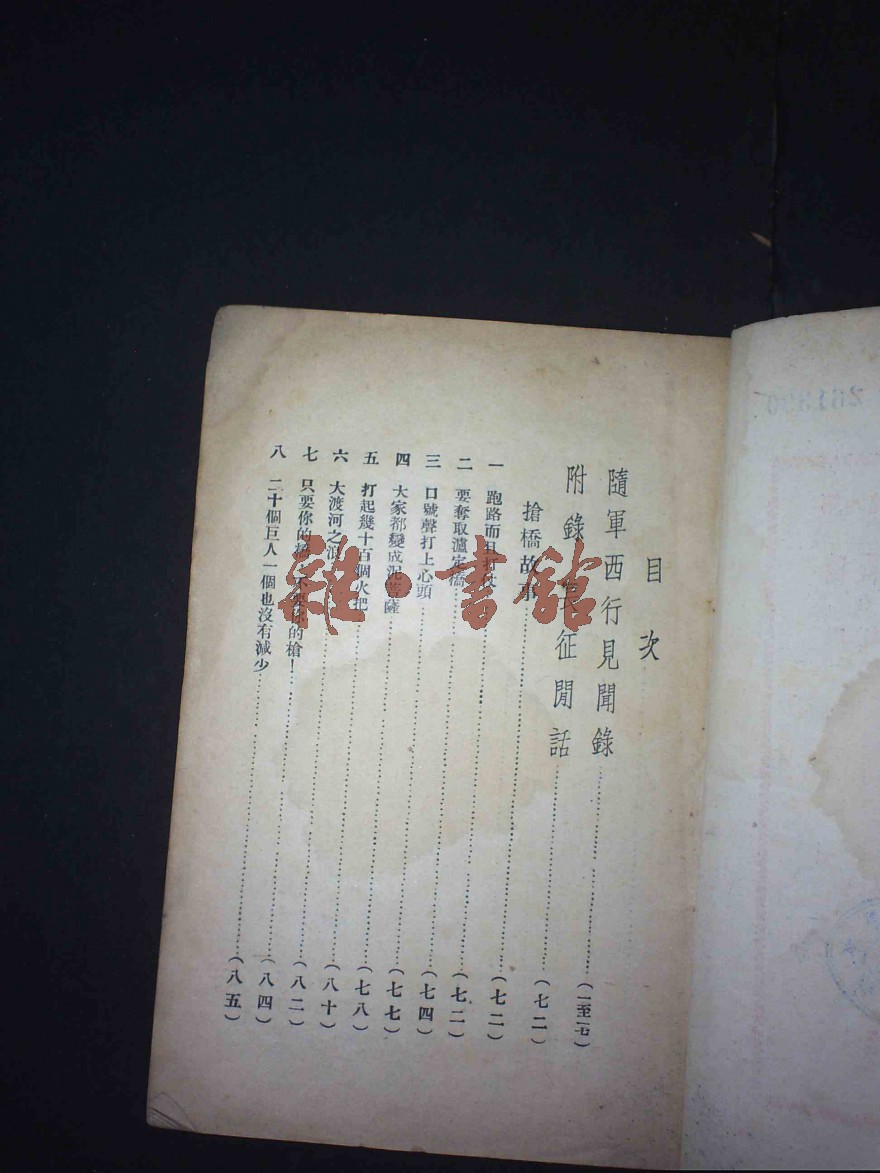 目次
隨軍西行見聞錄……(一至七一)
附錄 長征閒話……(七二)
搶橋故事……(七二)
一 跑路而且打仗……(七二)
二 要奪取瀘定橋……(七四)
三 口號聲打上心頭……(七七)
四 大家都變成泥菩薩……(七八)
五 打起幾十百個火把……(八十)
六 大渡河之浪……(八二)
七 只要你的橋,不要你的槍!……(八四)
八 二十個巨人一個也沒有減少……(八五)
雜·書館